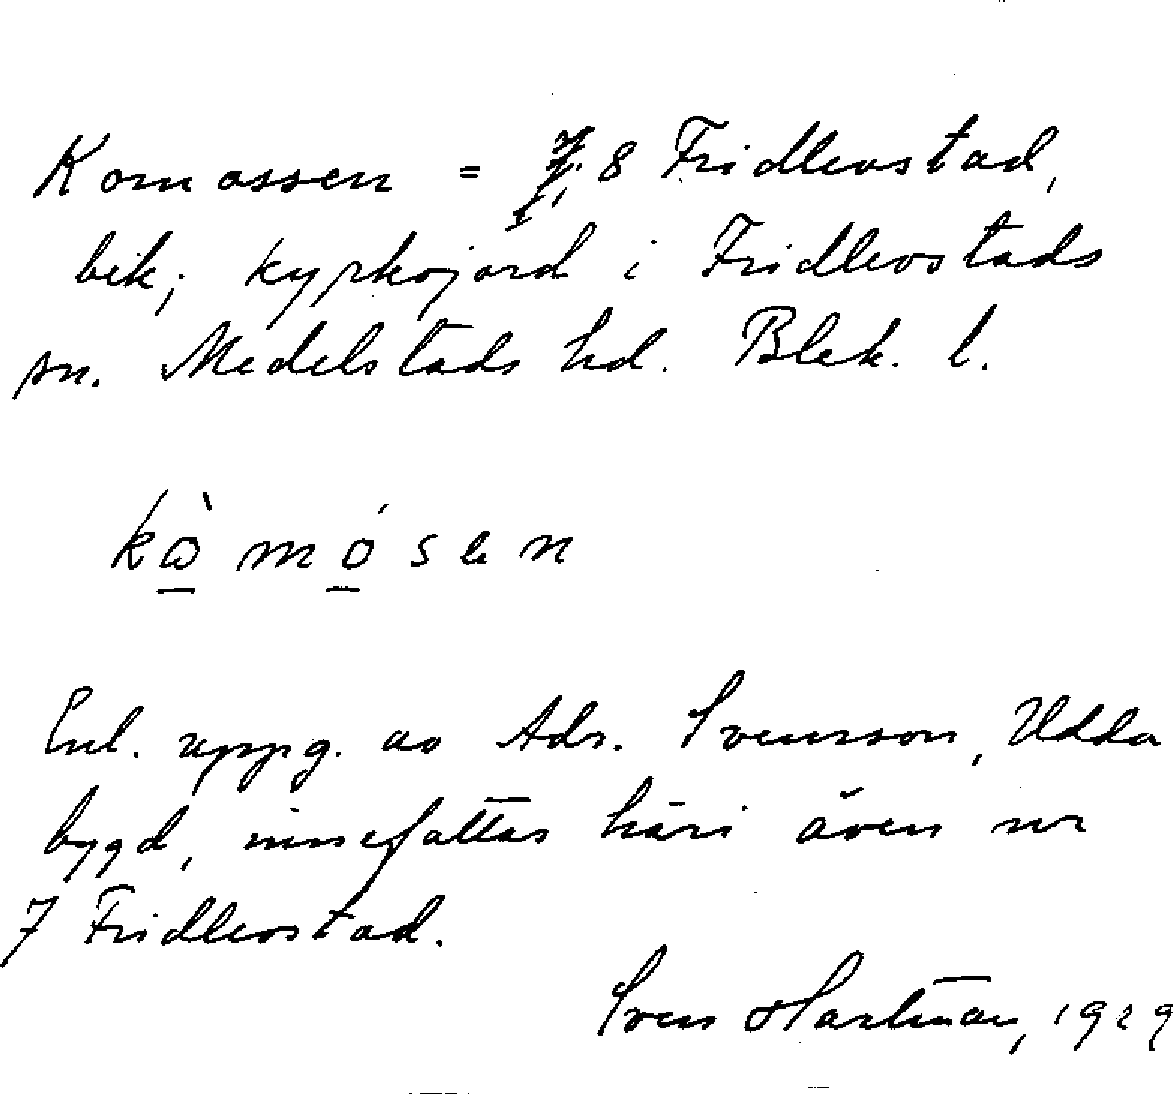 Komossen = 8 Fridlevstad,
bek; kyrkojord i Fridlevstads
sn. Medelstads hd. Blek. l.
kòmósen
Enl. uppg. av Adr. Svensson, Udda
bygd, innefattas häri även nr
7 Fridlevstad.
Sven Hartman, 1929